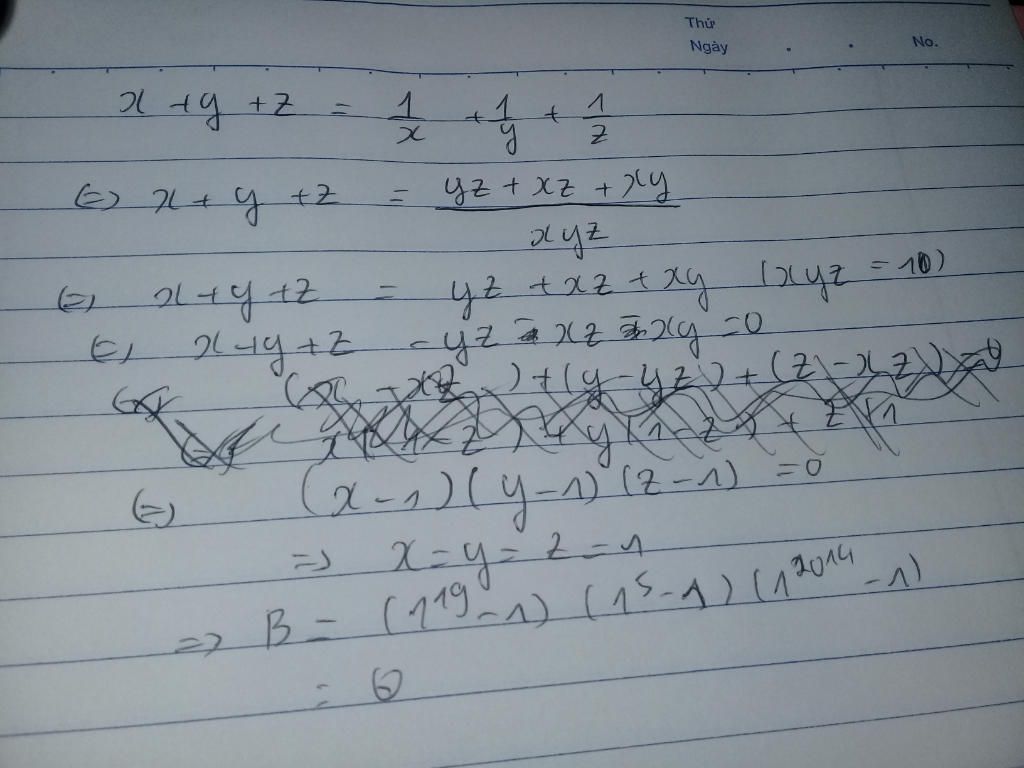 Thứ
Ngày . . No.
x + y + z = 1/x + 1/y + 1/z
(=) x + y + z = (yz + xz + xy)/xyz
(=) x + y + z = yz + xz + xy (xyz = 1)
(=) x + y + z - yz - xz - xy = 0
(=) (x - 1)(y - 1)(z - 1) = 0
=> x = y = z = 1
=> B = (1^19 - 1)(1^5 - 1)(1^2014 - 1)
= 0